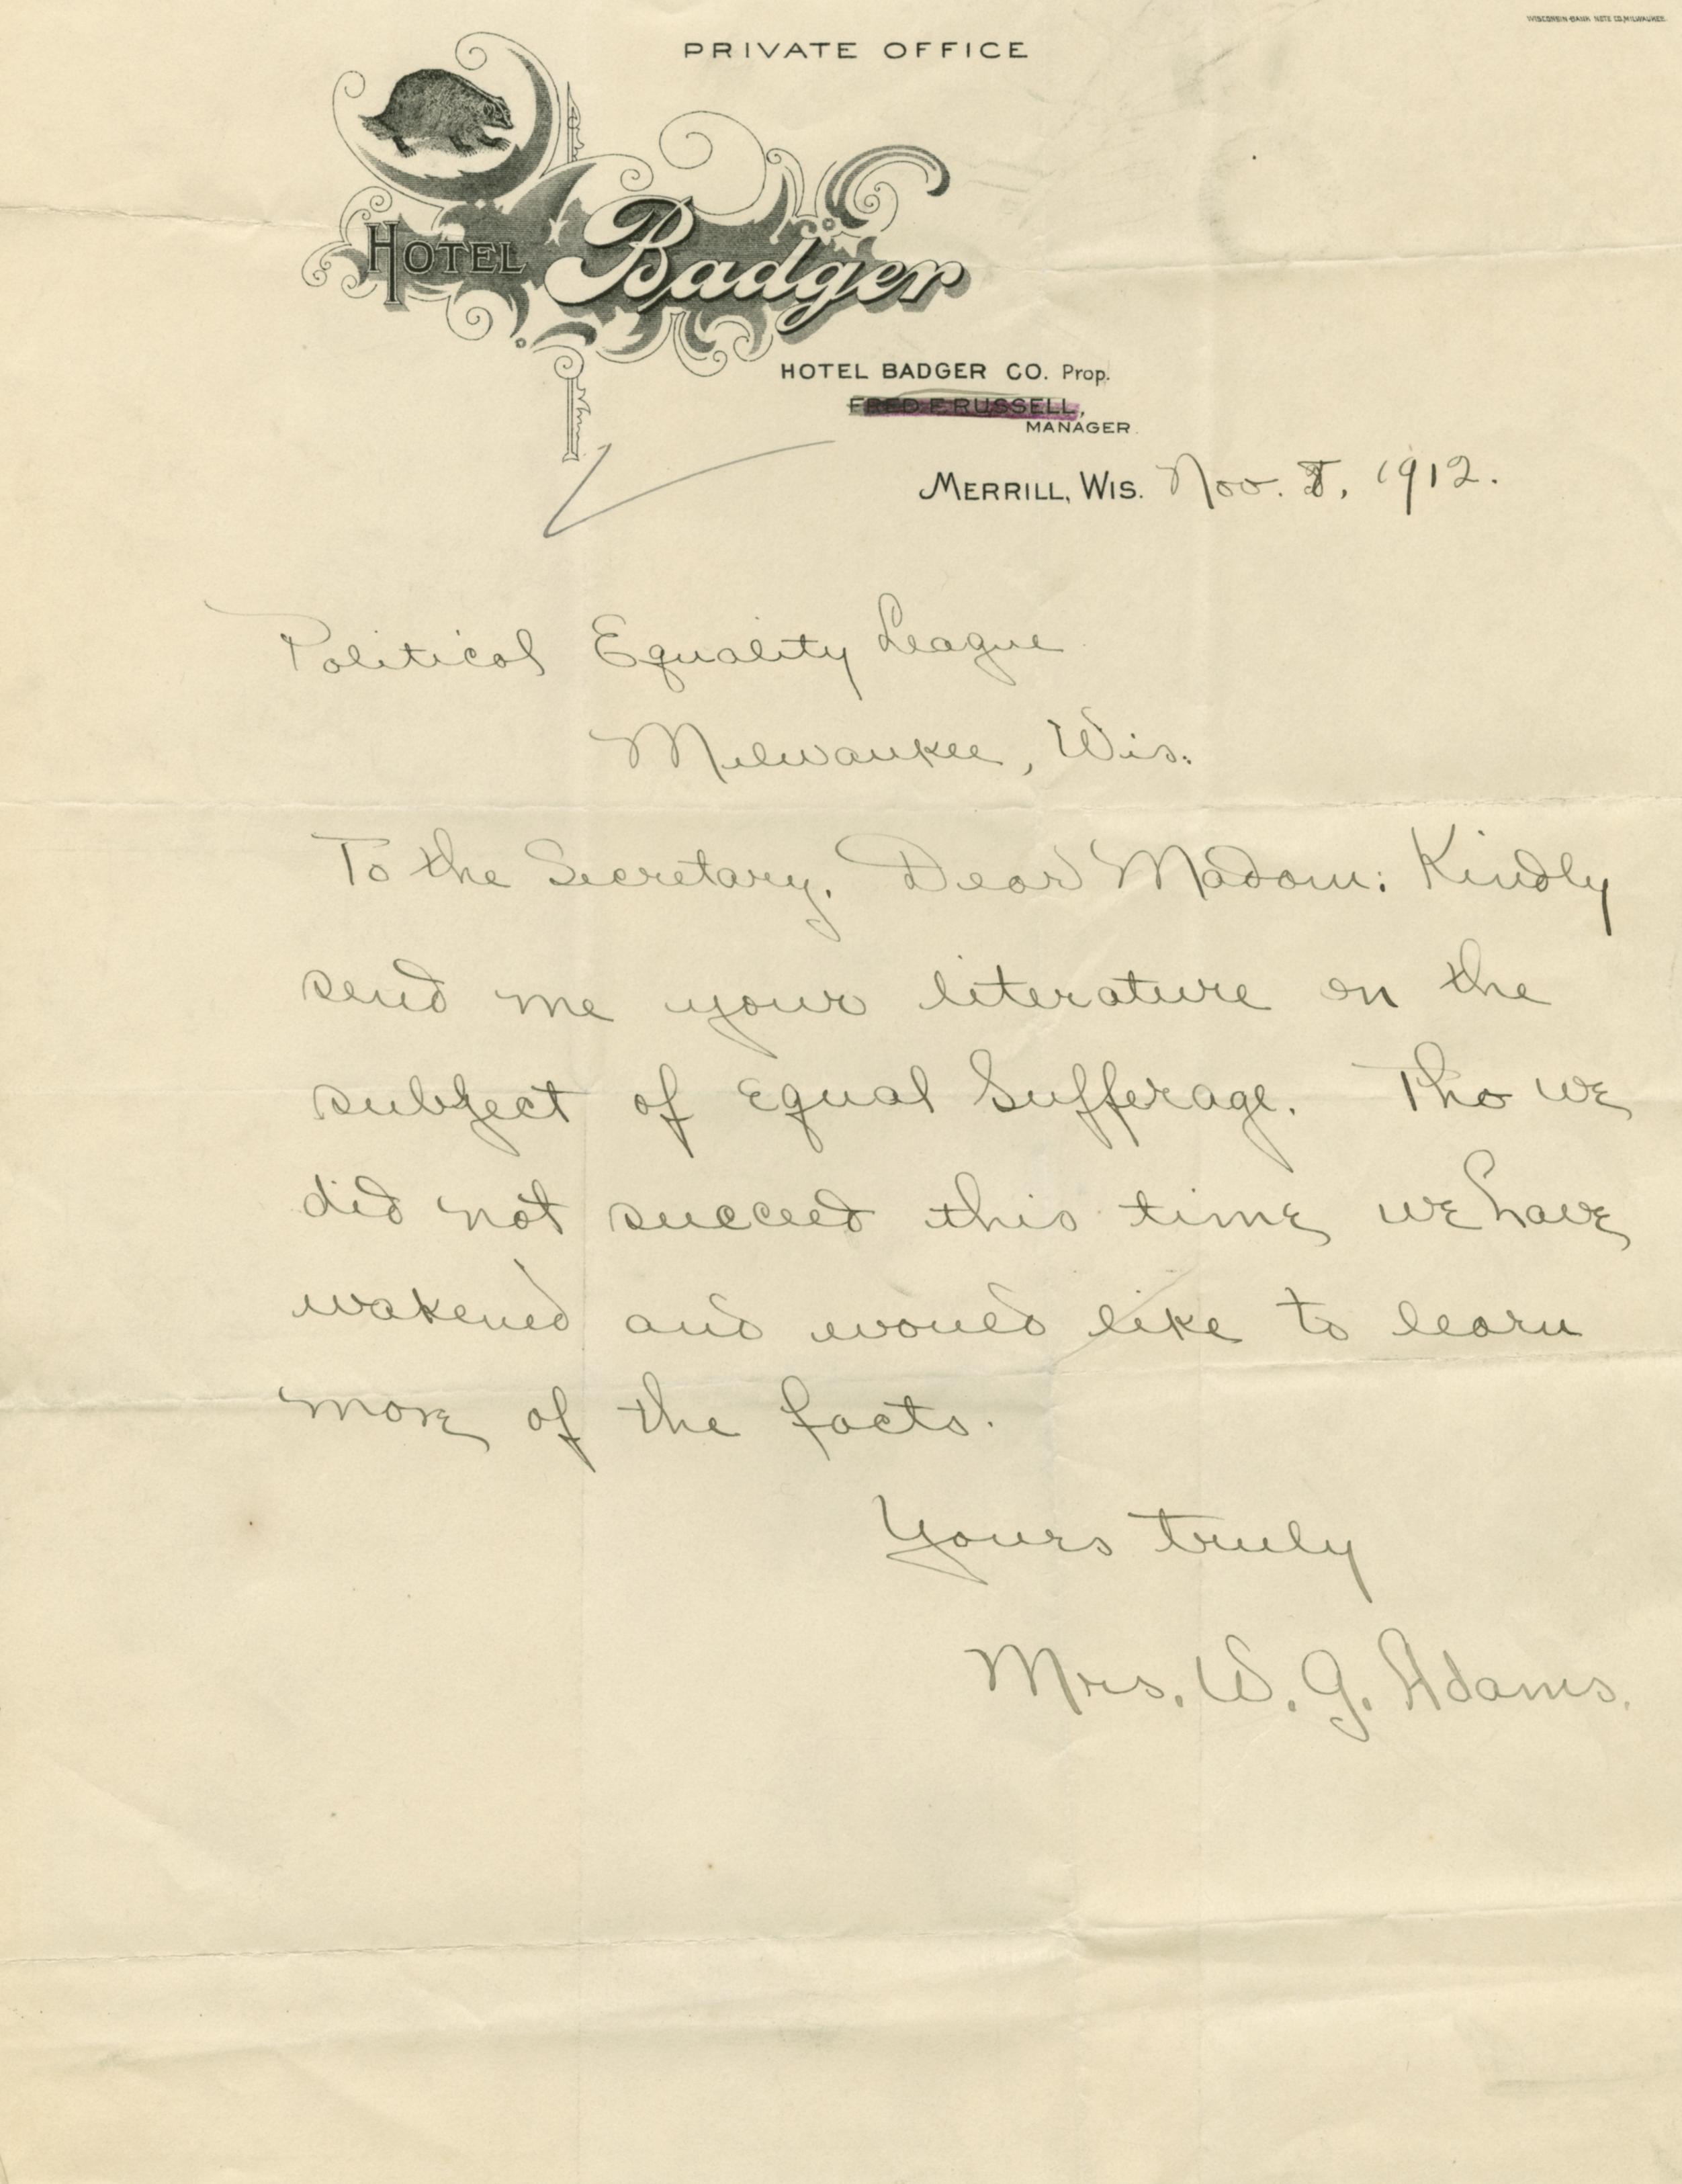 WISCONSIN BANK NOTE CO. MILWAUKEE.
PRIVATE OFFICE
HOTEL Badger
HOTEL BADGER CO. Prop.
FRED E RUSSELL,
MANAGER.
MERRILL, WIS. Nov. 8, 1912.
Political Equality League
Milwaukee, Wis.
To the Secretary. Dear Madam: Kindly
send me your literature on the
subject of Equal Sufferage. Tho we
did not succeed this time we have
wakened and would like to learn
more of the facts.
Yours truly
Mrs. W. G. Adams.